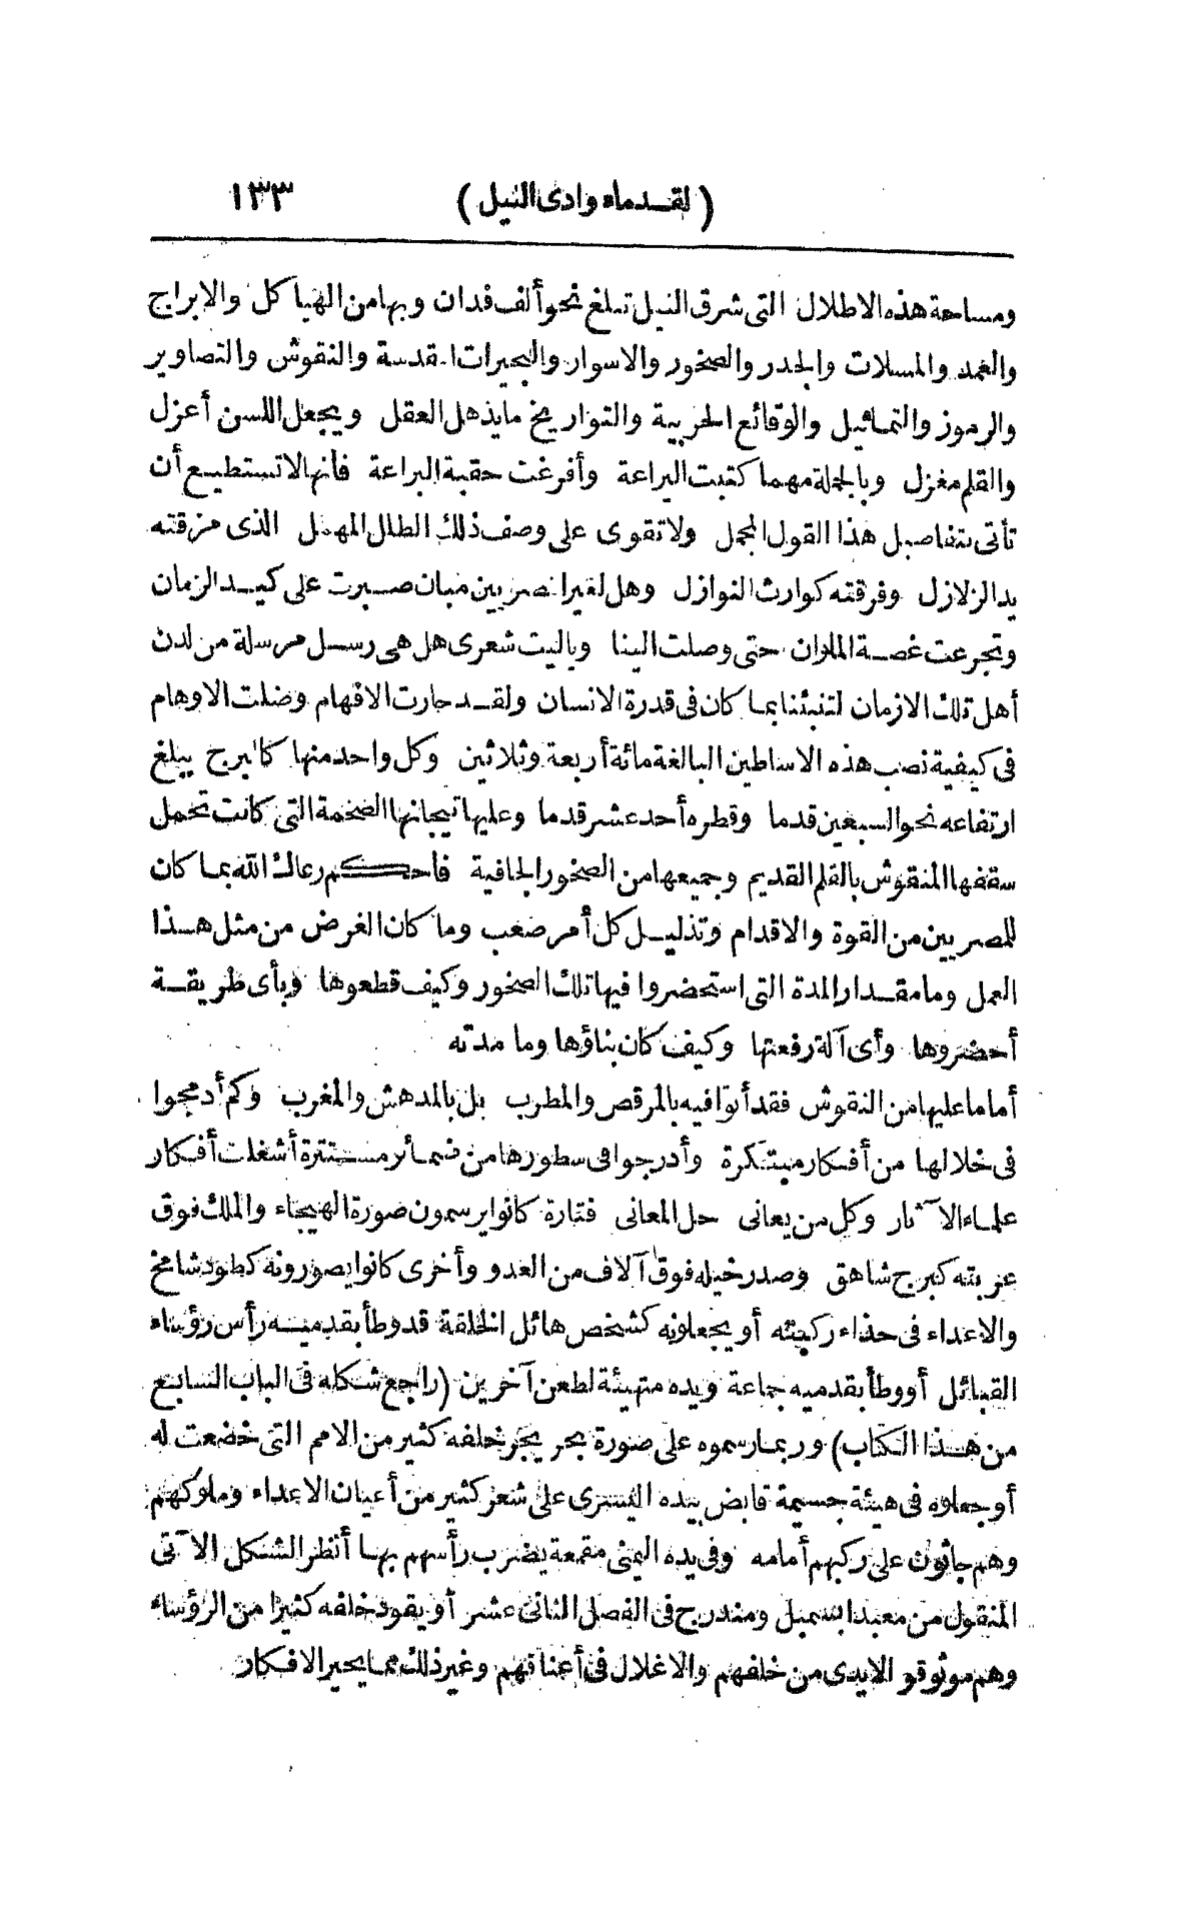 (لقدماء وادى النيل) ١٣٣
ومساحة هذه الاطلال التى شرق النيل تبلغ نحو ألف فدان وبها من الهياكل والابراج
والعمد والمسلات والجدر والصخور والاسوار والبحيرات المقدسة والنقوش والتصاوير
والرموز والتماثيل والوقائع الحربية والتواريخ ما يذهل العقل ويجعل اللسن أعزل
والقلم مغزل وبالجملة مهما كتبت اليراعة وأفرغت حقبة البراعة فانها لا تستطيع أن
تأتى بتفاصيل هذا القول المجمل ولا تقوى على وصف ذلك الطلل المهمل الذى مزقته
يد الزلازل وفرقته كوارث النوازل وهل لغير المصريين مبان صبرت على كيد الزمان
وتجرعت غصة الملوان حتى وصلت الينا وياليت شعرى هل هى رسل مرسلة من لدن
أهل تلك الازمان لتنبئنا بما كان فى قدرة الانسان ولقد حارت الافهام وضلت الاوهام
فى كيفية نصب هذه الاساطين البالغة مائة أربعة وثلاثين وكل واحد منها كالبرج يبلغ
ارتفاعه نحو السبعين قدما وقطره أحد عشر قدما وعليها تيجانها الضخمة التى كانت تحمل
سقفها المنقوش بالقلم القديم وجميعها من الصخور الجافية فاحكم رعاك الله بما كان
للمصريين من القوة والاقدام وتذليل كل أمر صعب وما كان الغرض من مثل هذا
العمل وما مقدار المدة التى استحضروا فيها تلك الصخور وكيف قطعوها وبأى طريقة
أحضروها وأى آلة رفعتها وكيف كان بناؤها وما مدته
أما ما عليها من النقوش فقد أتوا فيه بالمرقص والمطرب بل بالمدهش والمغرب وكم أدمجوا
فى خلالها من أفكار مبتكرة وأدرجوا فى سطورها من ضمائر مستترة أشغلت أفكار
علماء الآثار وكل من يعانى حل المعانى فتارة كانوا يرسمون صورة الهيجاء والملك فوق
عربته كبرج شاهق وصدر خيله فوق آلاف من العدو وأخرى كانوا يصورونه كطود شامخ
والاعداء فى حذاء ركبته أو يجعلونه كشخص هائل الخلقة قد وطأ بقدميه رأس رؤساء
القبائل أو وطأ بقدميه جماعة ويده متهيئة لطعن آخرين (راجع شكله فى الباب السابع
من هذا الكتاب) وربما رسموه على صورة بحر يجر خلفه كثير من الامم التى خضعت له
أو جعلوه فى هيئة جسيمة قابض بيده اليسرى على شعر كثير من أعيان الاعداء وملوكهم
وهم جاثون على ركبهم أمامه وفى يده اليمنى مقمعة يضرب رأسهم بها أنظر الشكل الآتى
المنقول من معبد ابسمبل ومندرج فى الفصل الثانى عشر أو يقود خلفه كثيرا من الرؤساء
وهم موثوقو الايدى من خلفهم والاغلال فى أعناقهم وغير ذلك مما يحير الافكار